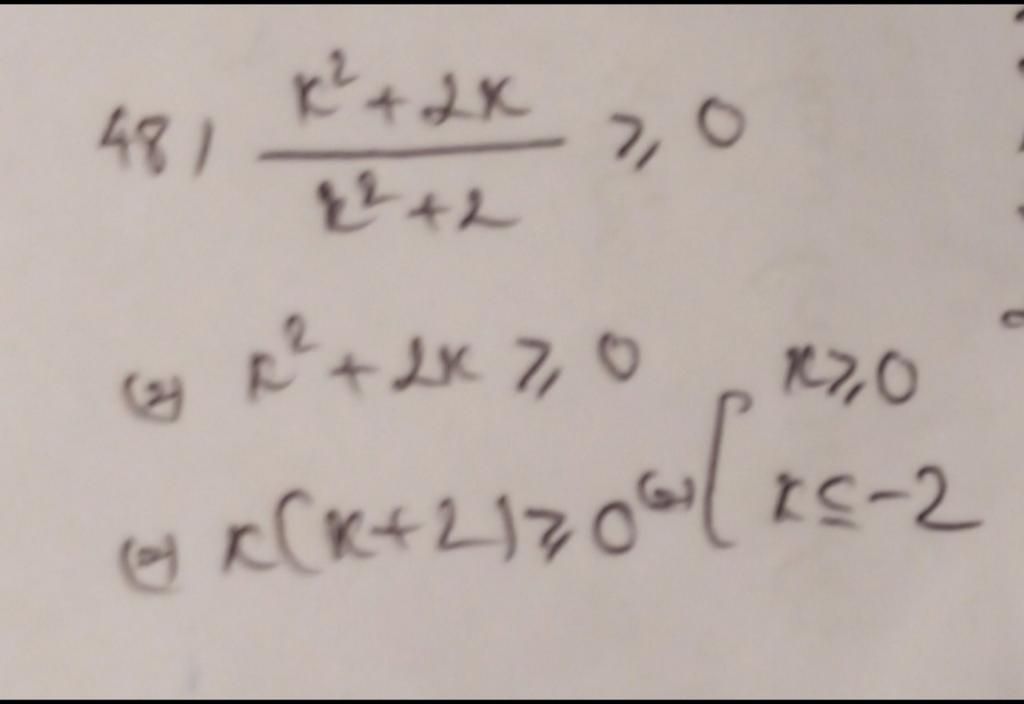 48) \frac{x^2+2x}{x^2+2} ⩾ 0
(=) x^2+2x ⩾ 0
(=) x(x+2) ⩾ 0 (=) [ x ⩾ 0
x ≤ -2